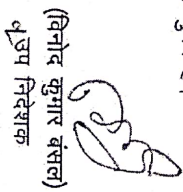 (विनोद कुमार बंसल)
उप निदेशक